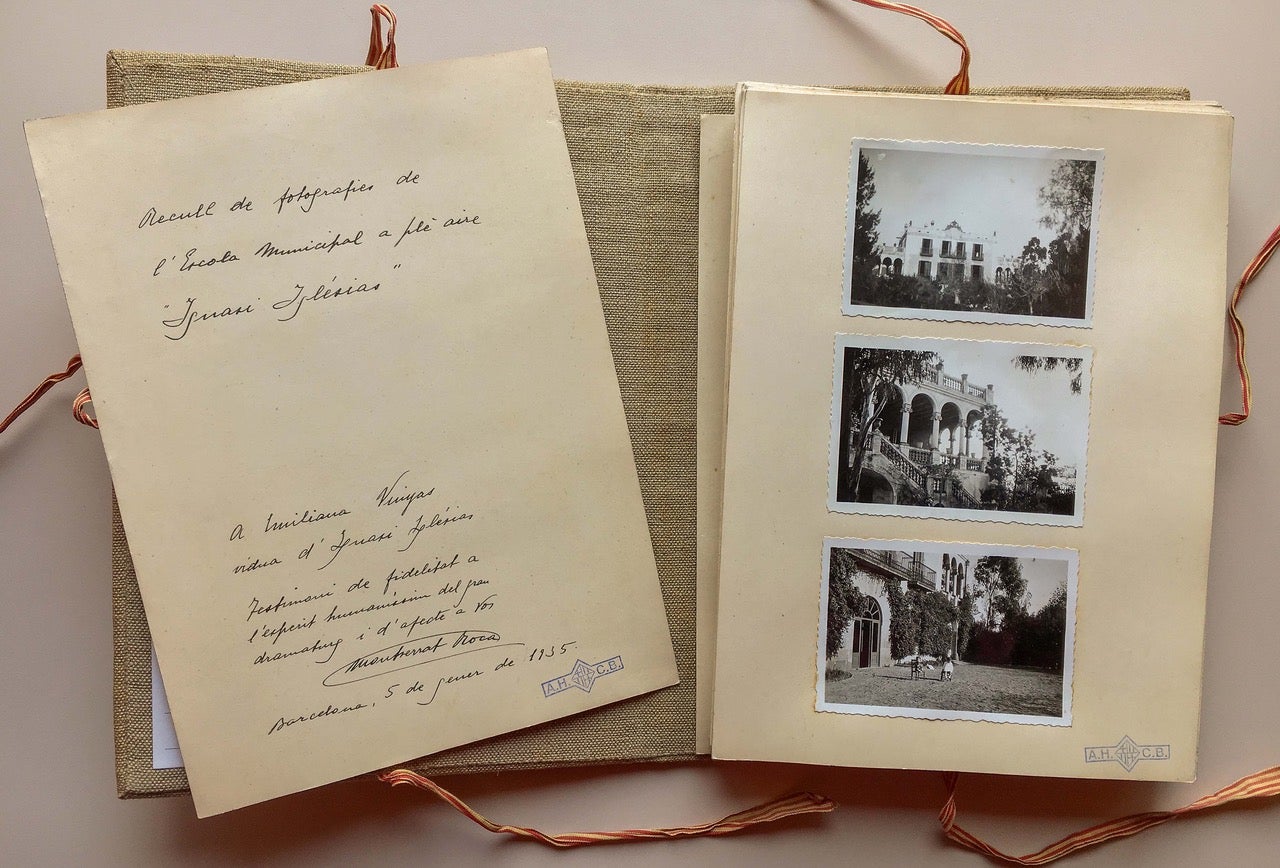 Recull de fotografies de
l'Escola Municipal a plè aire
"Ignasi Iglésias"
A Emiliana Vinyas
vidua d'Ignasi Iglésias
Testimoni de fidelitat a
l'esperit humaníssim del gran
dramaturg i d'afecte a Vos
Montserrat Roca
Barcelona, 5 de gener de 1935.
A.H. C.B.
A.H. C.B.